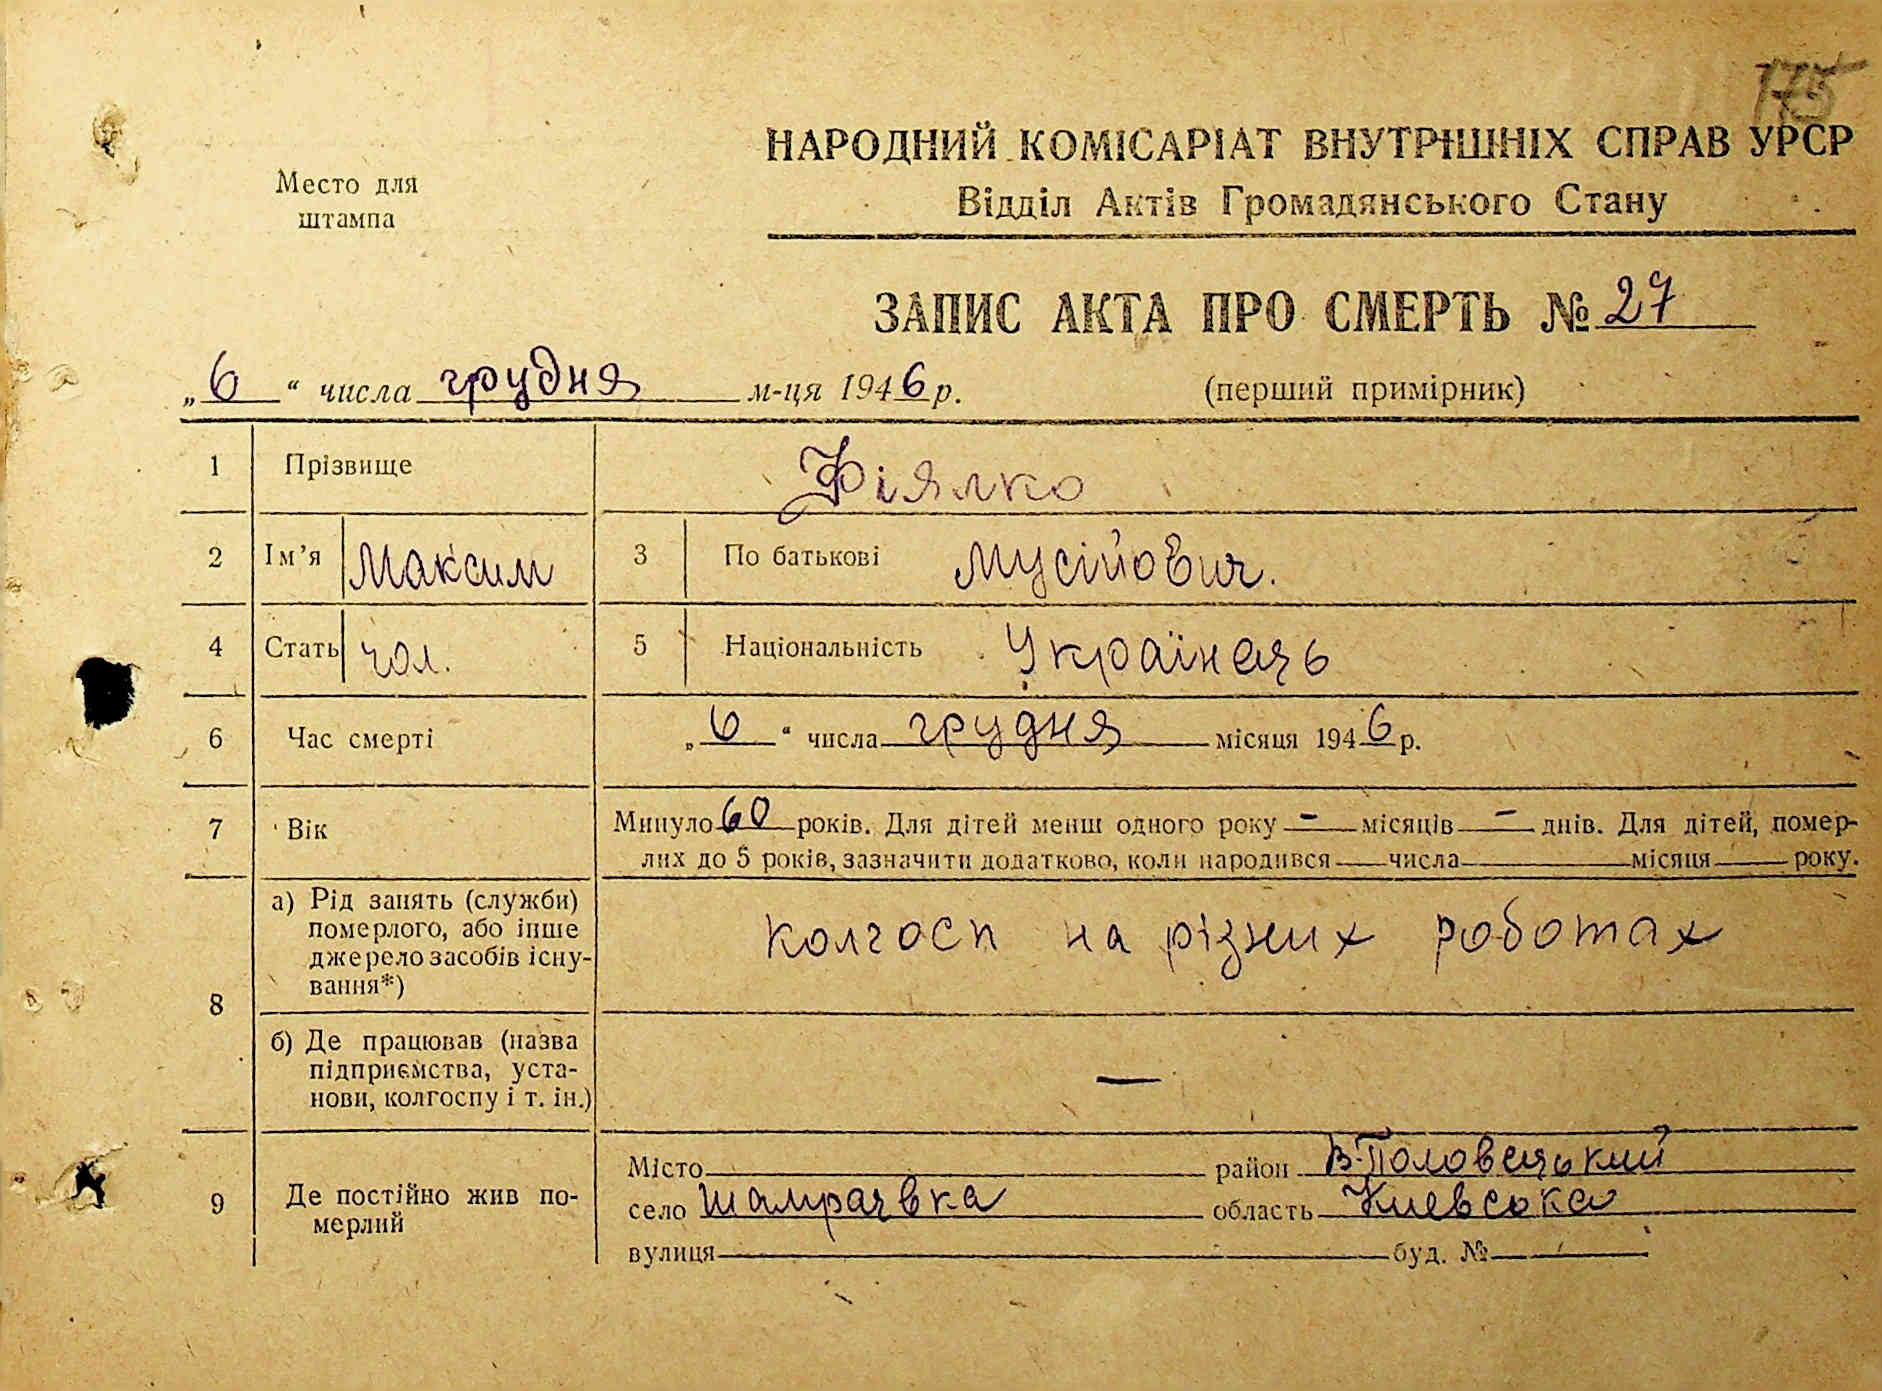 175
НАРОДНИЙ КОМІСАРІАТ ВНУТРІШНІХ СПРАВ УРСР
Место для
штампа
Відділ Актів Громадянського Стану
ЗАПИС АКТА ПРО СМЕРТЬ № 27
„6“ числа грудня м-ця 1946 р. (перший примірник)
1 Прізвище Фіялко
2 Ім’я Максим 3 По батькові Мусійович.
4 Стать чол. 5 Національність Українець
6 Час смерті „6“ числа грудня місяця 1946 р.
7 Вік Минуло 60 років. Для дітей менш одного року — місяців — днів. Для дітей, помер-
лих до 5 років, зазначити додатково, коли народився числа місяця року.
8 а) Рід занять (служби)
померлого, або інше
джерело засобів існу-
вання*)
колгосп на різних роботах
б) Де працював (назва
підприємства, уста-
нови, колгоспу і т. ін.)
—
9 Де постійно жив по-
мерлий
Місто район В-Половецький
село Шамраївка область Киевська
вулиця буд. № —